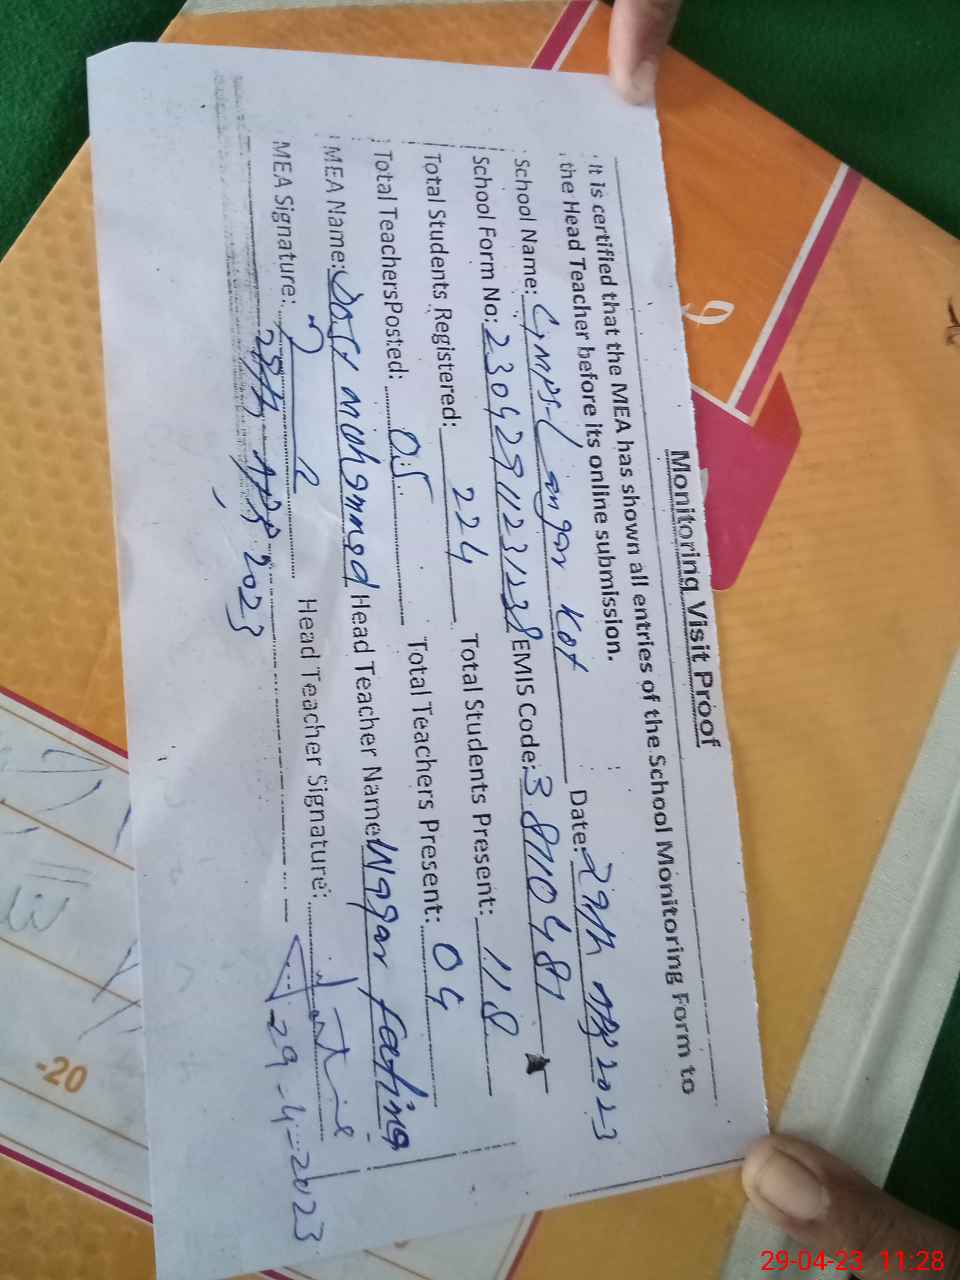 Monitoring Visit Proof
It is certified that the MEA has shown all entries of the School Monitoring Form to
the Head Teacher before its online submission.
Date: 29th Apr 2023
School Name: GMPS Langar Kot
School Form No: EMIS Code:
Total Students Registered: 224 Total Students Present: 118
Total TeachersPosted: 05 Total Teachers Present: 04
MEA Name: Dost Mohammed Head Teacher Name: Waqar
MEA Signature: Head Teacher Signature:
29th Apr 2023
29-4-2023
9
-20
29-04-23 11:28